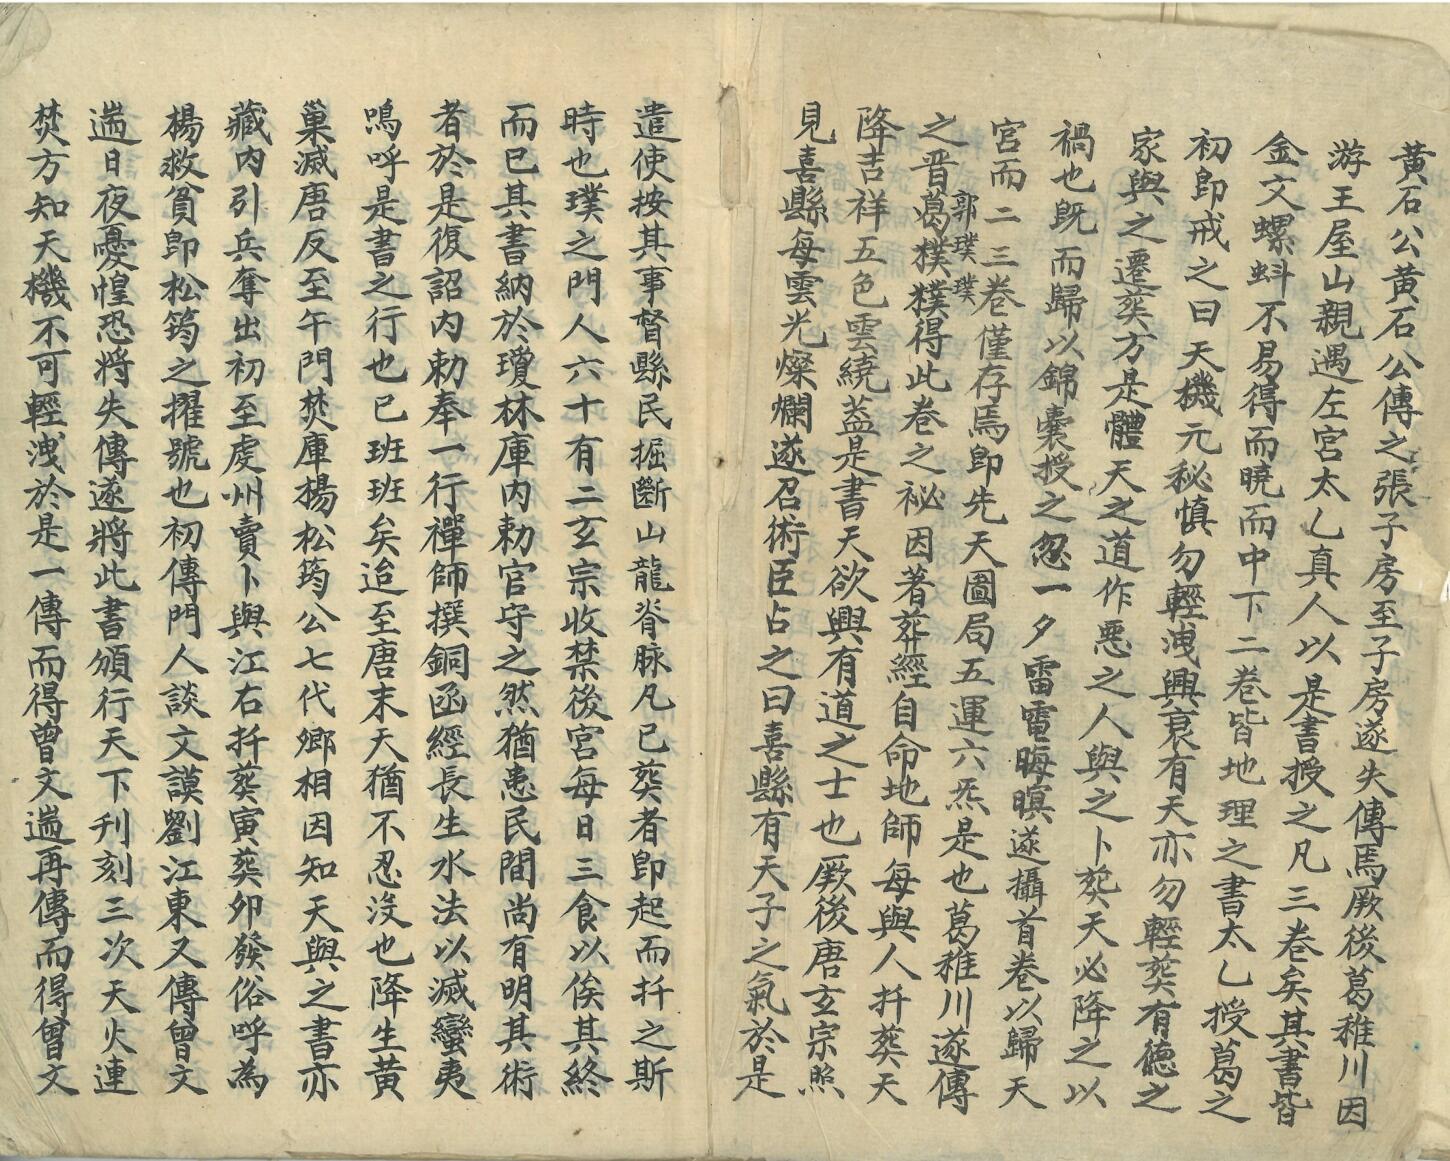 黃石公黃石公傳之張子房至子房遂失傳焉厥後葛稚川因
游王屋山親遇左宮太乙真人以是書授之凡三卷矣其書皆
金文螺蚪不易得而曉而中下二卷皆地理之書太乙授葛之
初即戒之曰天機元秘慎勿輕洩興衰有天亦勿輕葬有德之
家與之遷葬方是體天之道作惡之人與之卜葬天必降之以
禍也既而歸以錦囊授之忽一夕雷電晦暝遂攝首卷以歸天
宮而二三卷僅存焉即先天圖局五運六炁是也葛稚川遂傳
郭璞璞
之晋葛樸樸得此卷之祕因著葬經自命地師每與人扦葬天
降吉祥五色雲繞蓋是書天欲興有道之士也厥後唐玄宗照
見喜縣每雲光燦爛遂召術臣占之曰喜縣有天子之氣於是
遣使按其事督縣民掘斷山龍脊脉凡已葬者即起而扦之斯
時也璞之門人六十有二玄宗收禁後宮每日三食以俟其終
而已其書納於瓊林庫内勅官守之然猶患民間尚有明其術
者於是復詔内勅奉一行禪師撰銅函經長生水法以滅蠻夷
鳴呼是書之行也已班班矣迨至唐末天猶不忍没也降生黄
巢滅唐反至午門焚庫楊松筠公七代鄉相因知天與之書亦
藏内引兵奪出初至虔州賣卜與江右扦葬寅葬卯發俗呼為
楊救貧即松筠之擢號也初傳門人談文謨劉江東又傳曾文
遄日夜憂惶恐將失傳遂將此書頒行天下刋刻三次天火連
焚方知天機不可輕洩於是一傳而得曾文遄再傳而得曾文